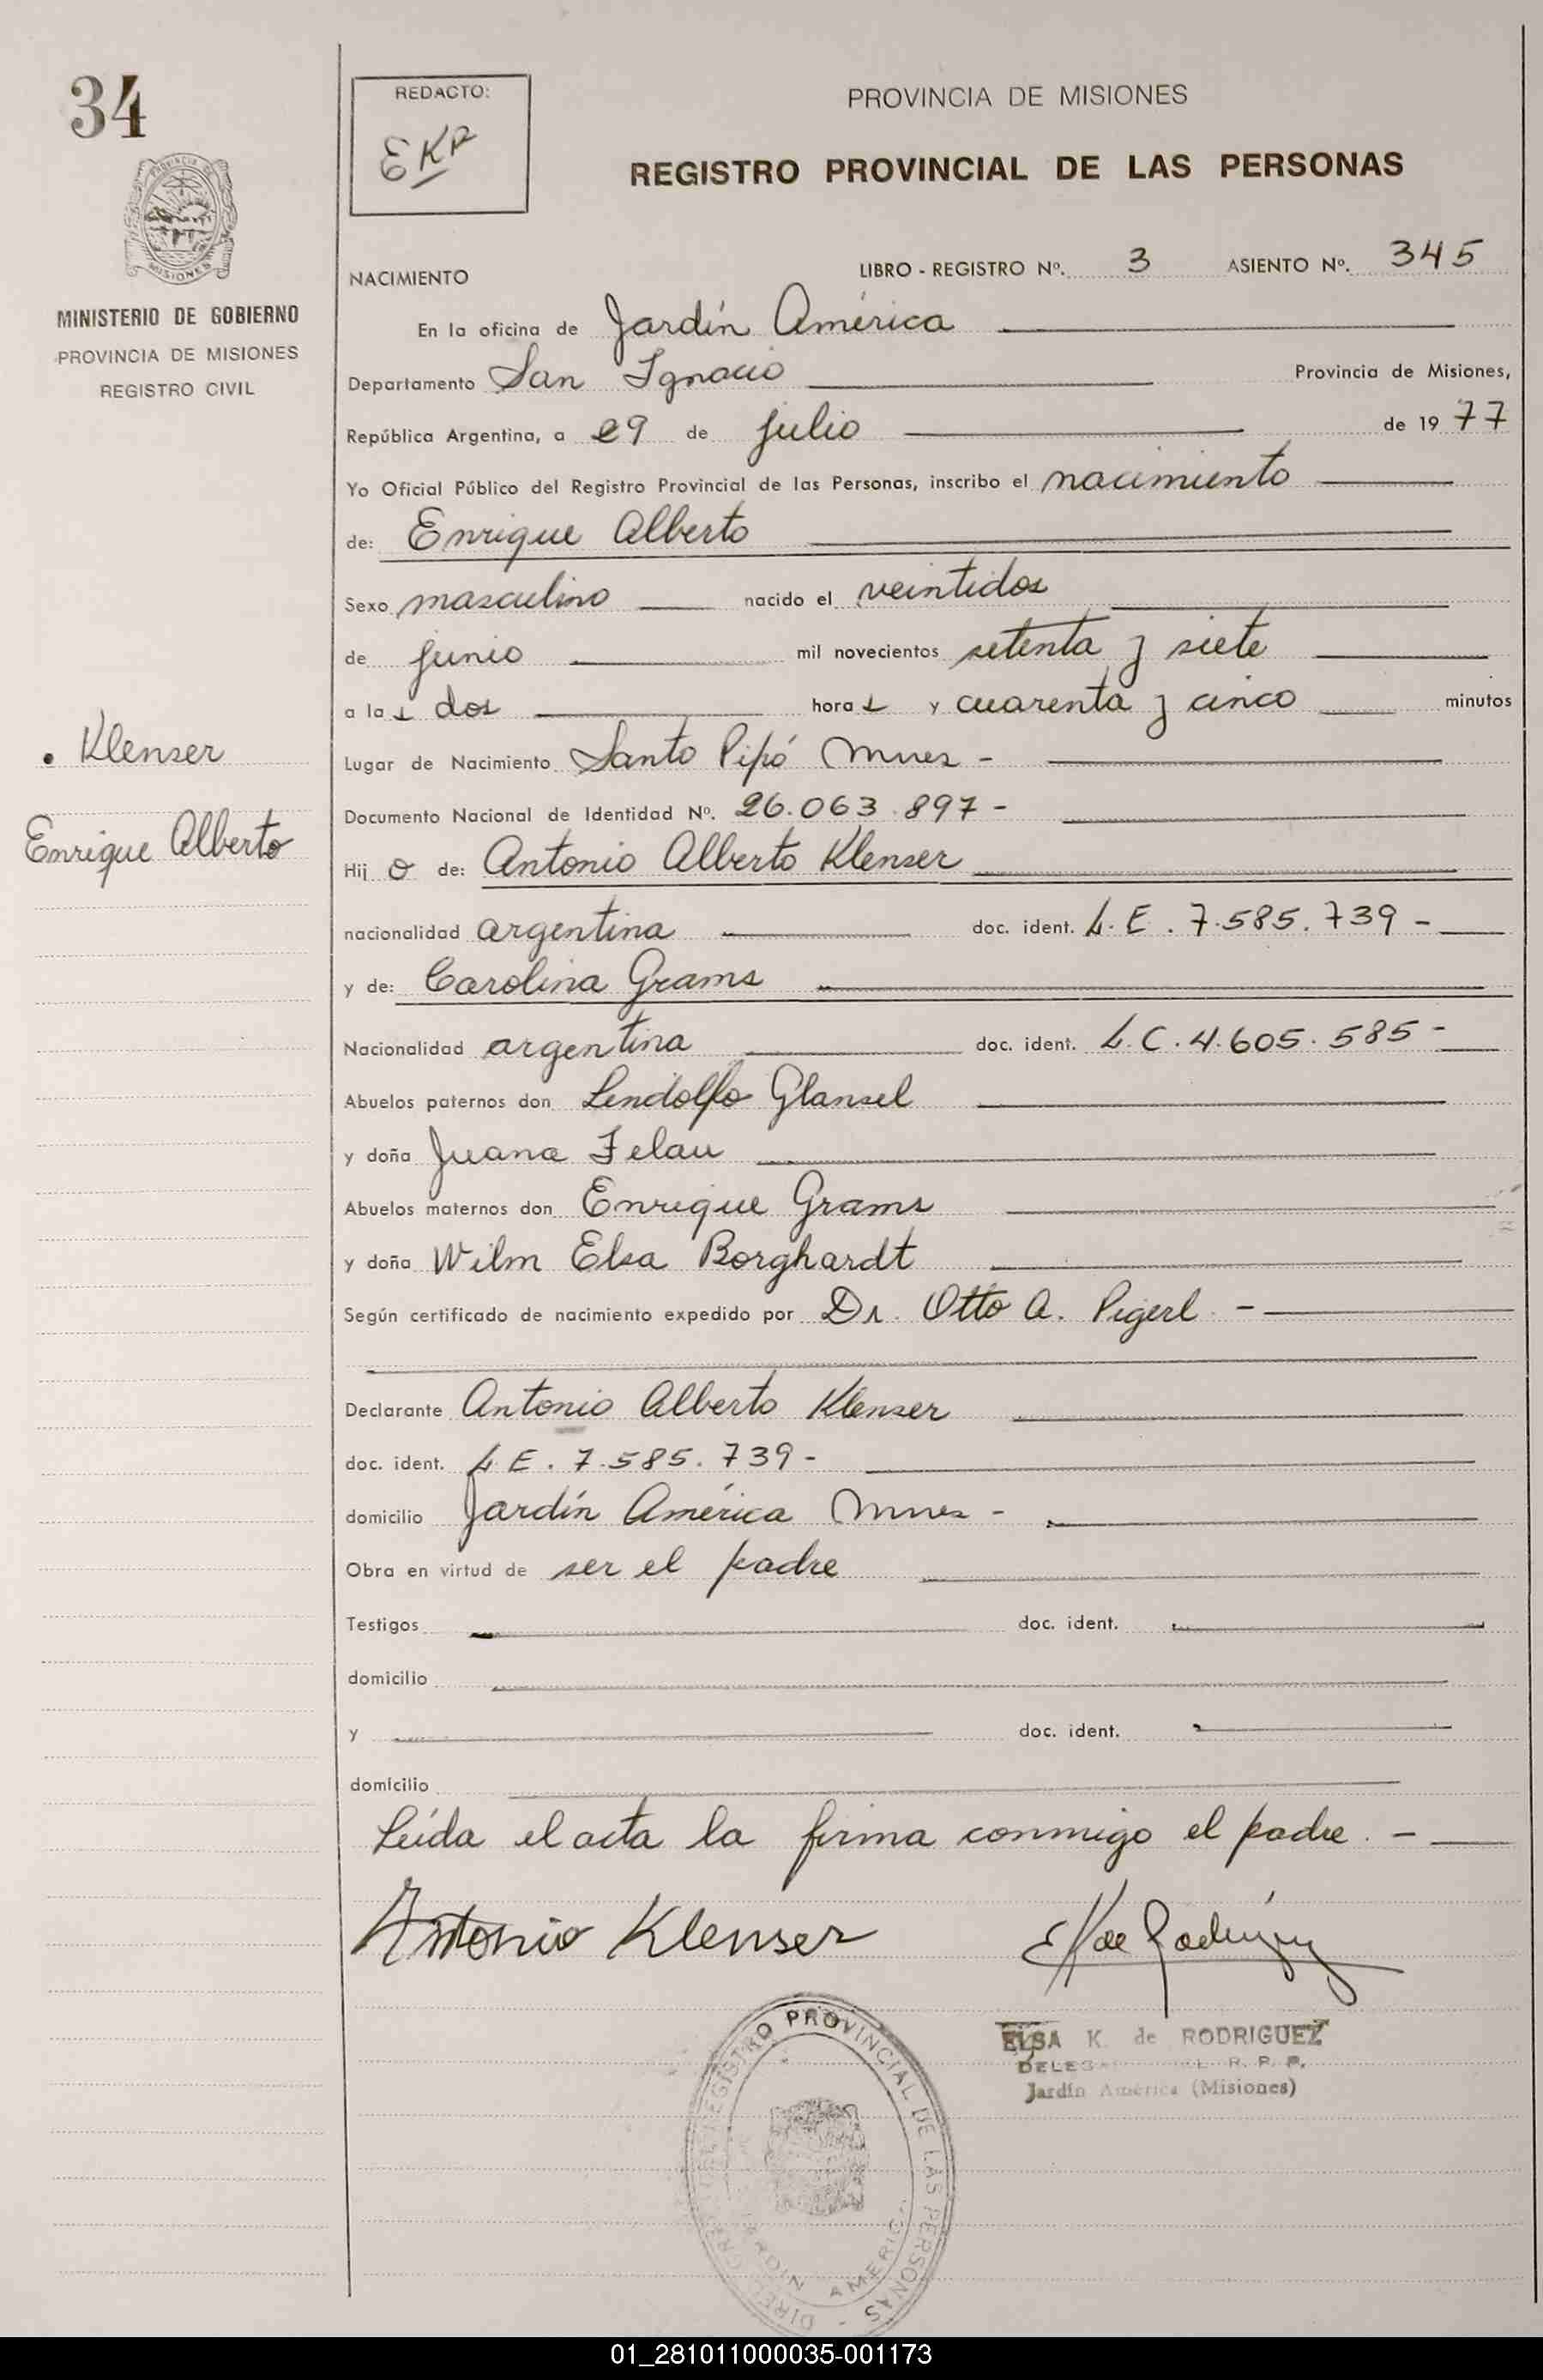 34
MINISTERIO DE GOBIERNO
PROVINCIA DE MISIONES
REGISTRO CIVIL
REDACTO:
EKR
PROVINCIA DE MISIONES
REGISTRO PROVINCIAL DE LAS PERSONAS
NACIMIENTO LIBRO - REGISTRO Nº. 3 ASIENTO Nº. 345
En la oficina de Jardín América
Departamento San Ignacio Provincia de Misiones,
República Argentina, a 29 de julio de 1977
Yo Oficial Público del Registro Provincial de las Personas, inscribo el nacimiento
de: Enrique Alberto
Sexo masculino nacido el veintidos
de junio mil novecientos setenta y siete
a las dos horas y cuarenta y cinco minutos
Klenser
Lugar de Nacimiento Santo Pipó Mnes -
Documento Nacional de Identidad Nº. 26.063.897 -
Enrique Alberto
Hijo de: Antonio Alberto Klenser
nacionalidad argentina doc. ident. L.E. 7.585.739 -
y de: Carolina Grams
Nacionalidad argentina doc. ident. L.C. 4.605.585 -
Abuelos paternos don Lindolfo Glansel
y doña Juana Felau
Abuelos maternos don Enrique Grams
y doña Wilm Elsa Borghardt
Según certificado de nacimiento expedido por Dr. Otto A. Pigerl. -
Declarante Antonio Alberto Klenser
doc. ident. L.E. 7.585.739 -
domicilio Jardín América Mnes -
Obra en virtud de ser el padre
Testigos doc. ident.
domicilio
y doc. ident.
domicilio
Leída el acta la firma conmigo el padre. -
Antonio Klenser EK de Rodríguez
ELSA K. de RODRIGUEZ
R. P. P.
Jardín América (Misiones)
REGISTRO PROVINCIAL DE LAS PERSONAS
JARDIN AMERICA
01_281011000035-001173